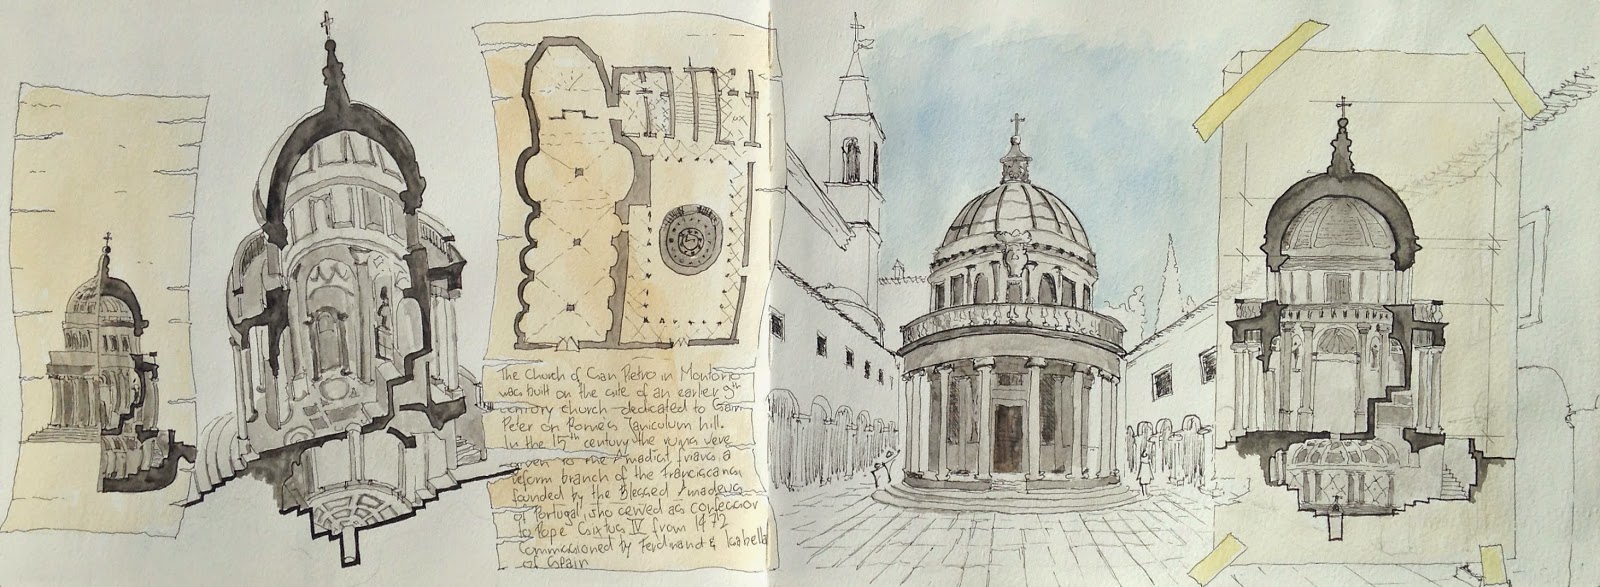 The Church of San Pietro in Montorio
was built on the site of an earlier 9th
century church dedicated to Saint
Peter on Rome's Janiculum hill.
In the 15th century the ruins were
given to the Amadist friars, a
reform branch of the Franciscans
founded by the Blessed Amadeus
of Portugal, who served as confessor
to Pope Sixtus IV from 1472
Commissioned by Ferdinand & Isabella
of Spain